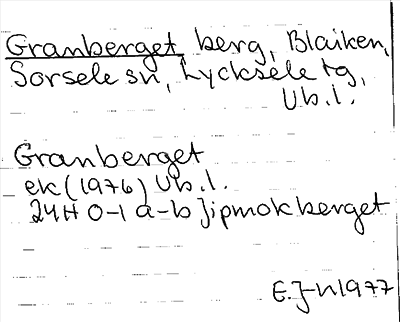 Granberget, berg, Blaiken,
Sorsele sn, Lycksele tg,
Vb.l.
Granberget
ek (1976) Vb.l.
24H 0-1 a-b Jipmokberget
E.J-n 1977